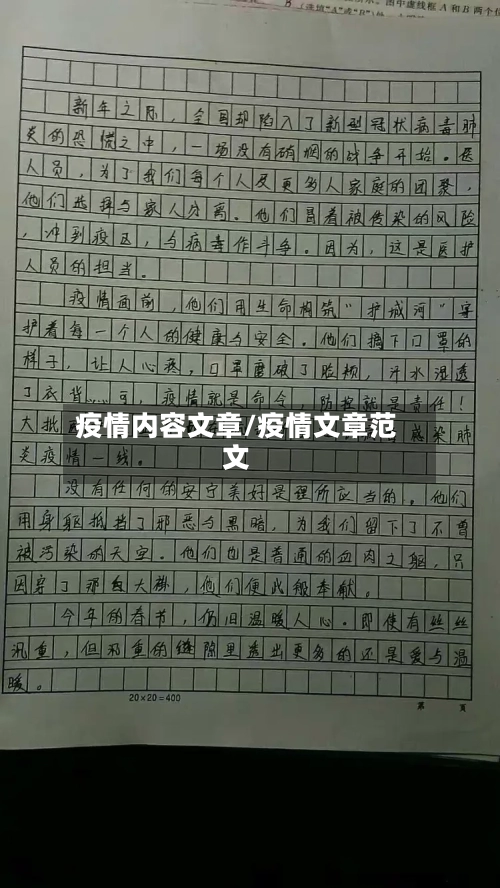 B(选填"A"或"B")
图中虚线框 A 和 B 两个
新年之际，全国却陷入了新型冠状病毒肺
炎的恐慌之中，一场没有硝烟的战争开始。医
人员，为了我们每个人及更多人家庭的团聚，
他们选择与家人分离。他们冒着被传染的风险
，冲到疫区，与病毒作斗争。因为，这是医护
人员的担当。
疫情面前，他们用生命构筑"护城河"守
护着每一个人的健康与安全。他们摘下口罩的
样子，让人心疼，口罩磨破了脸颊，汗水湿透
了衣背……可，疫情就是命令，防控就是责任！
大批
感染肺
疫情内容文章/疫情文章范
文
炎疫情一线。
没有任何的安宁美好是理所应当的，他们
用身躯抵挡了邪恶与黑暗，为我们留下了不曾
被污染的天空。他们也是普通的血肉之躯，只
因穿了那白大褂，他们便此般奉献。
今年的春节，仍旧温暖人心。即使有丝丝
沉重，但沉重的缝隙里透出更多的还是爱与温
暖。
20×20=400
第 页